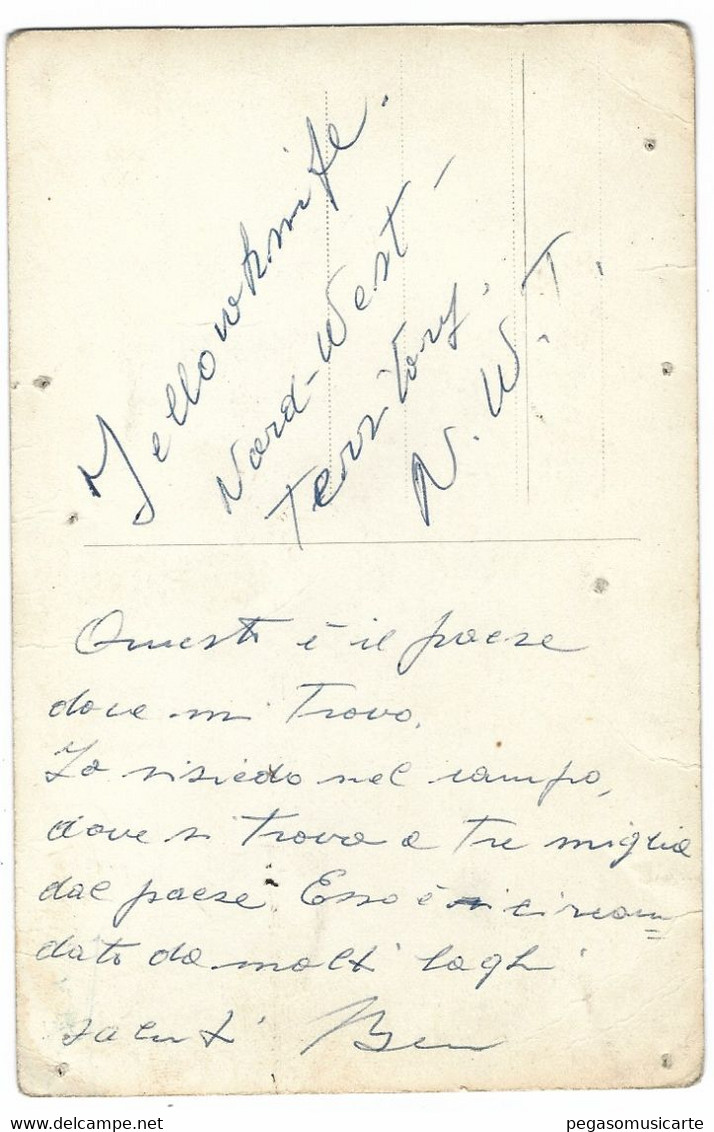 Yellowknife.
Nord-West-
Territory.
N.W.T.
Questo è il paese
dove mi trovo.
Io risiedo nel campo,
dove si trova a tre miglia
dal paese. Esso è circon=
dato da molti laghi
saluti Ben
pegasomusicarte